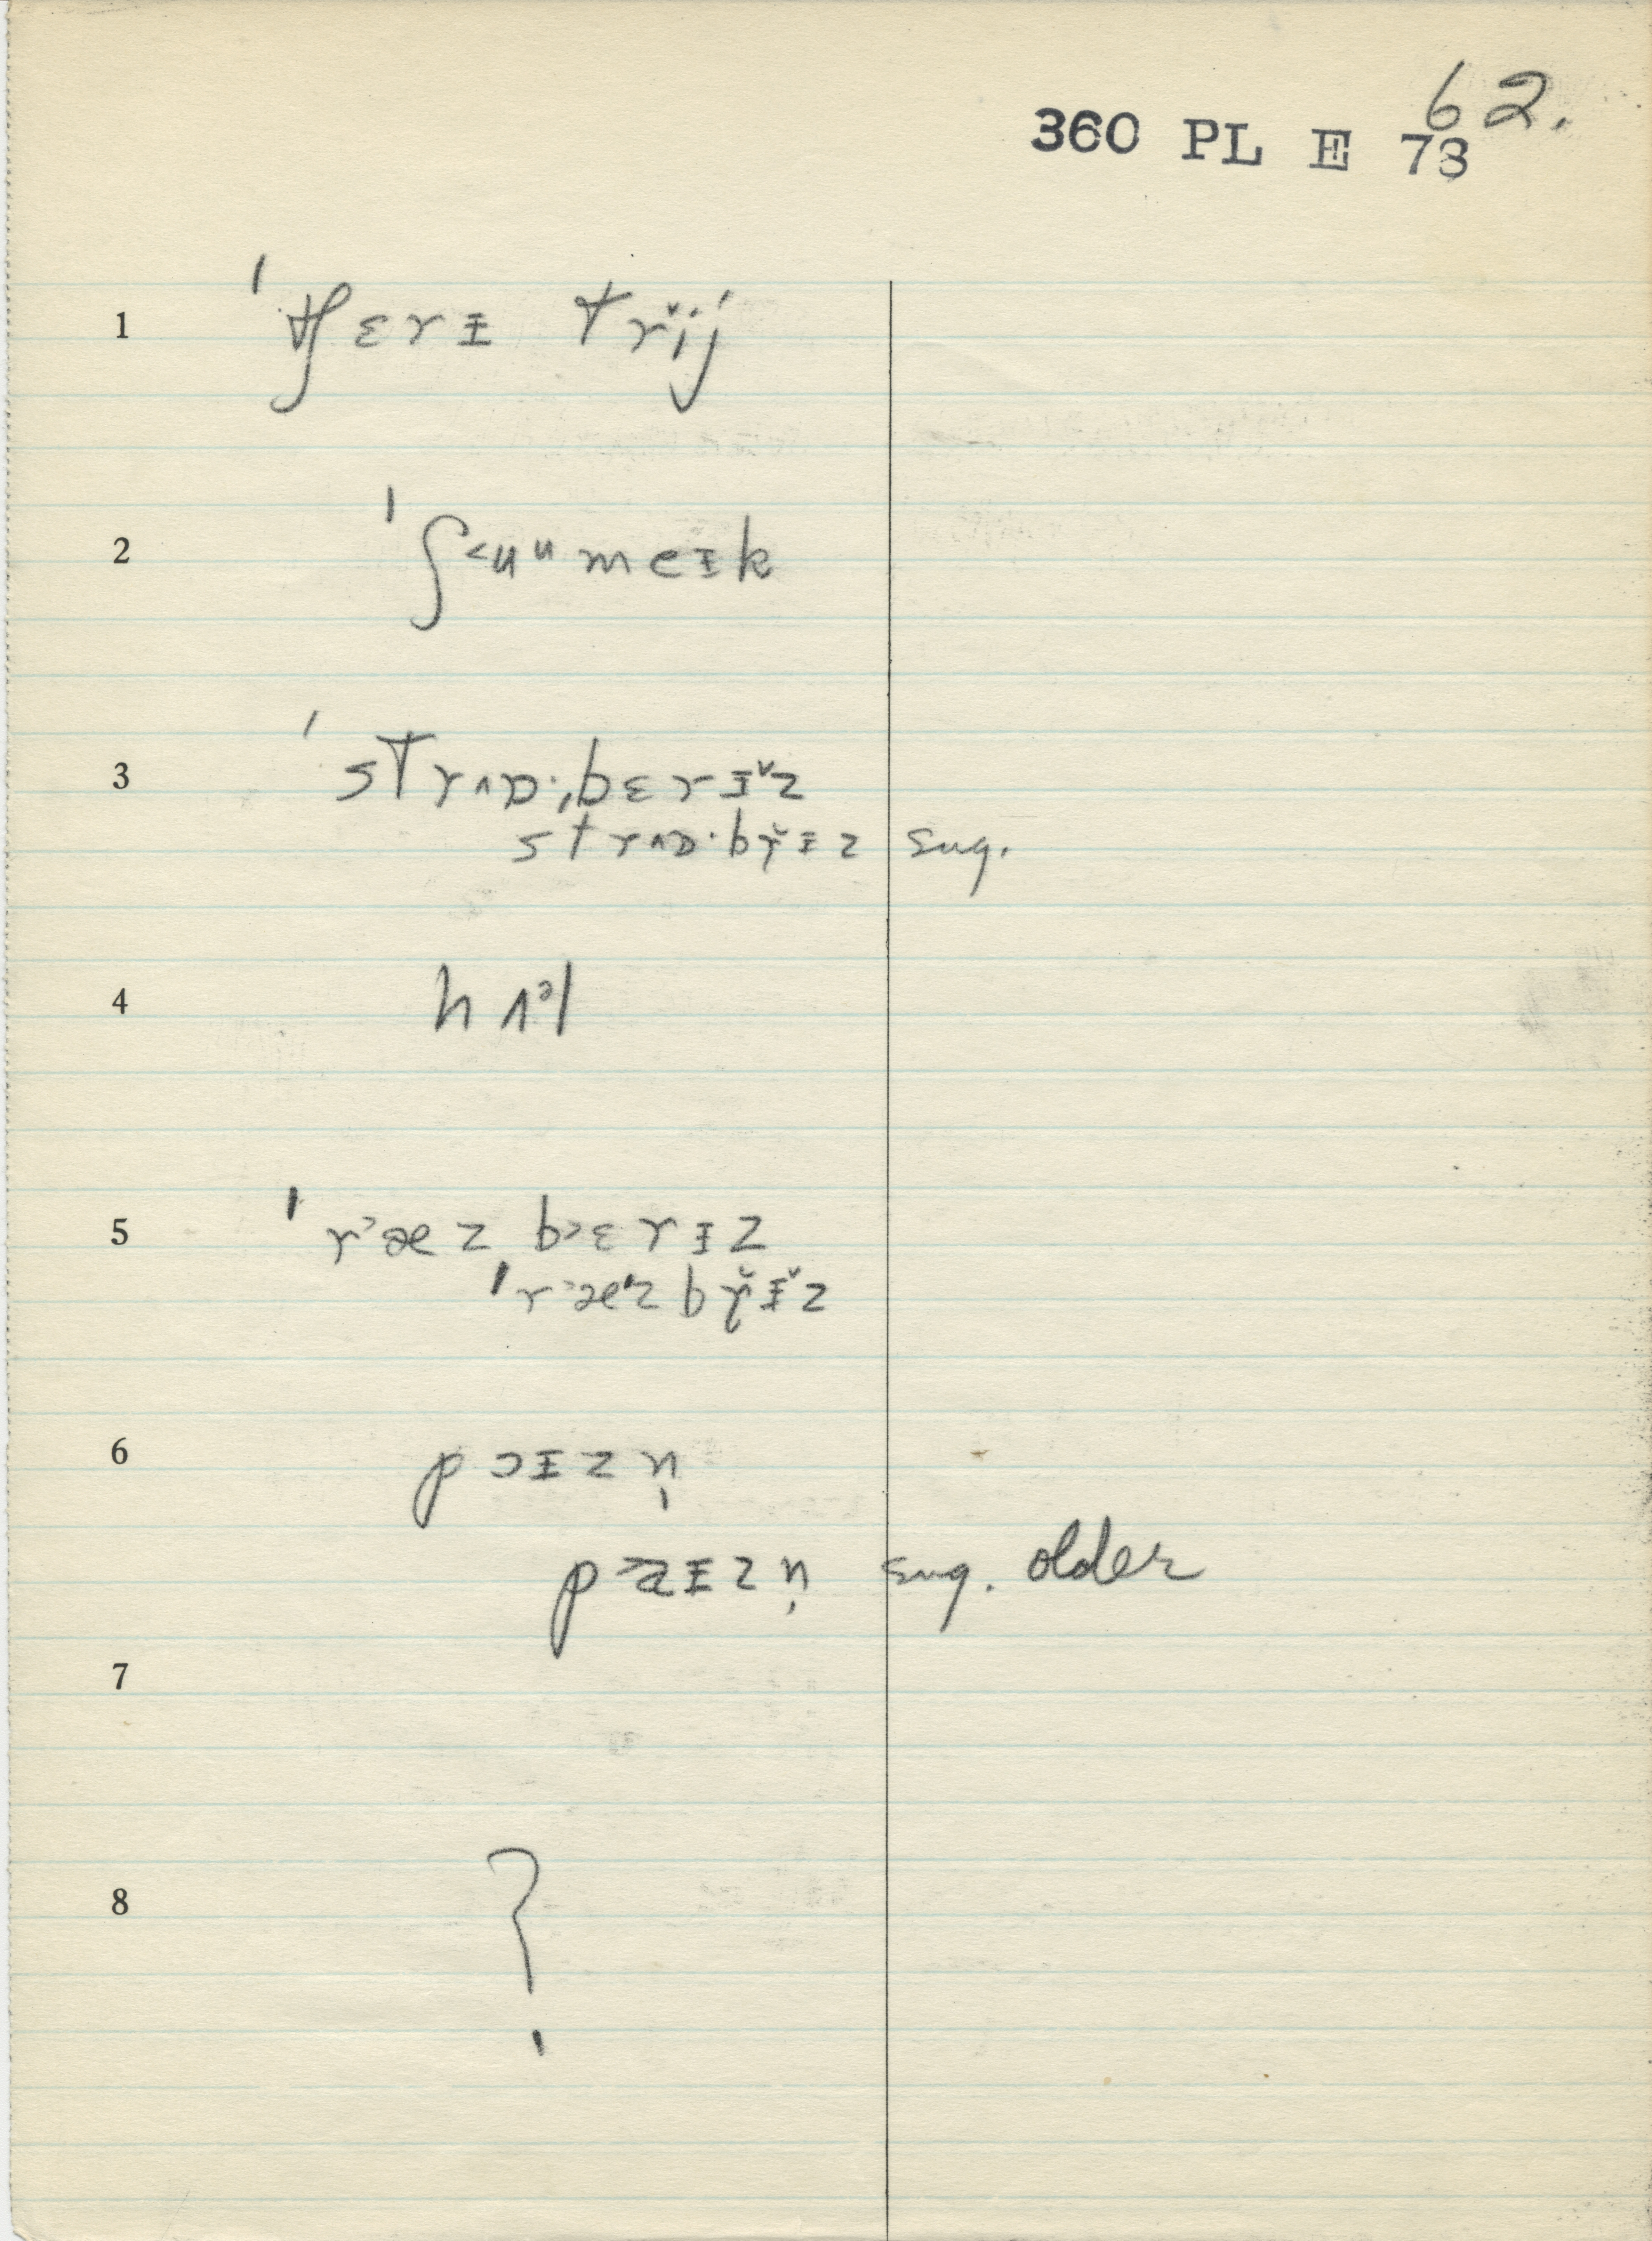 62.
360 PL E 73
1 ˈtʃɛrɪ trĭij
2 ˈʃ˂uᵘmeɪk
3 ˈstrʌɒ·ˌbɛrɪ̆z
strʌɒ·bɚ̆ɪz sug.
4 hʌᵊl
5 ˈr˃æz b˃ɛrɪz
ˈr˃æᶻz bɚ̆ɪ̆z
6 pɔɪzn̩
p˃aɪzn̩ sug. older
7
8 ?